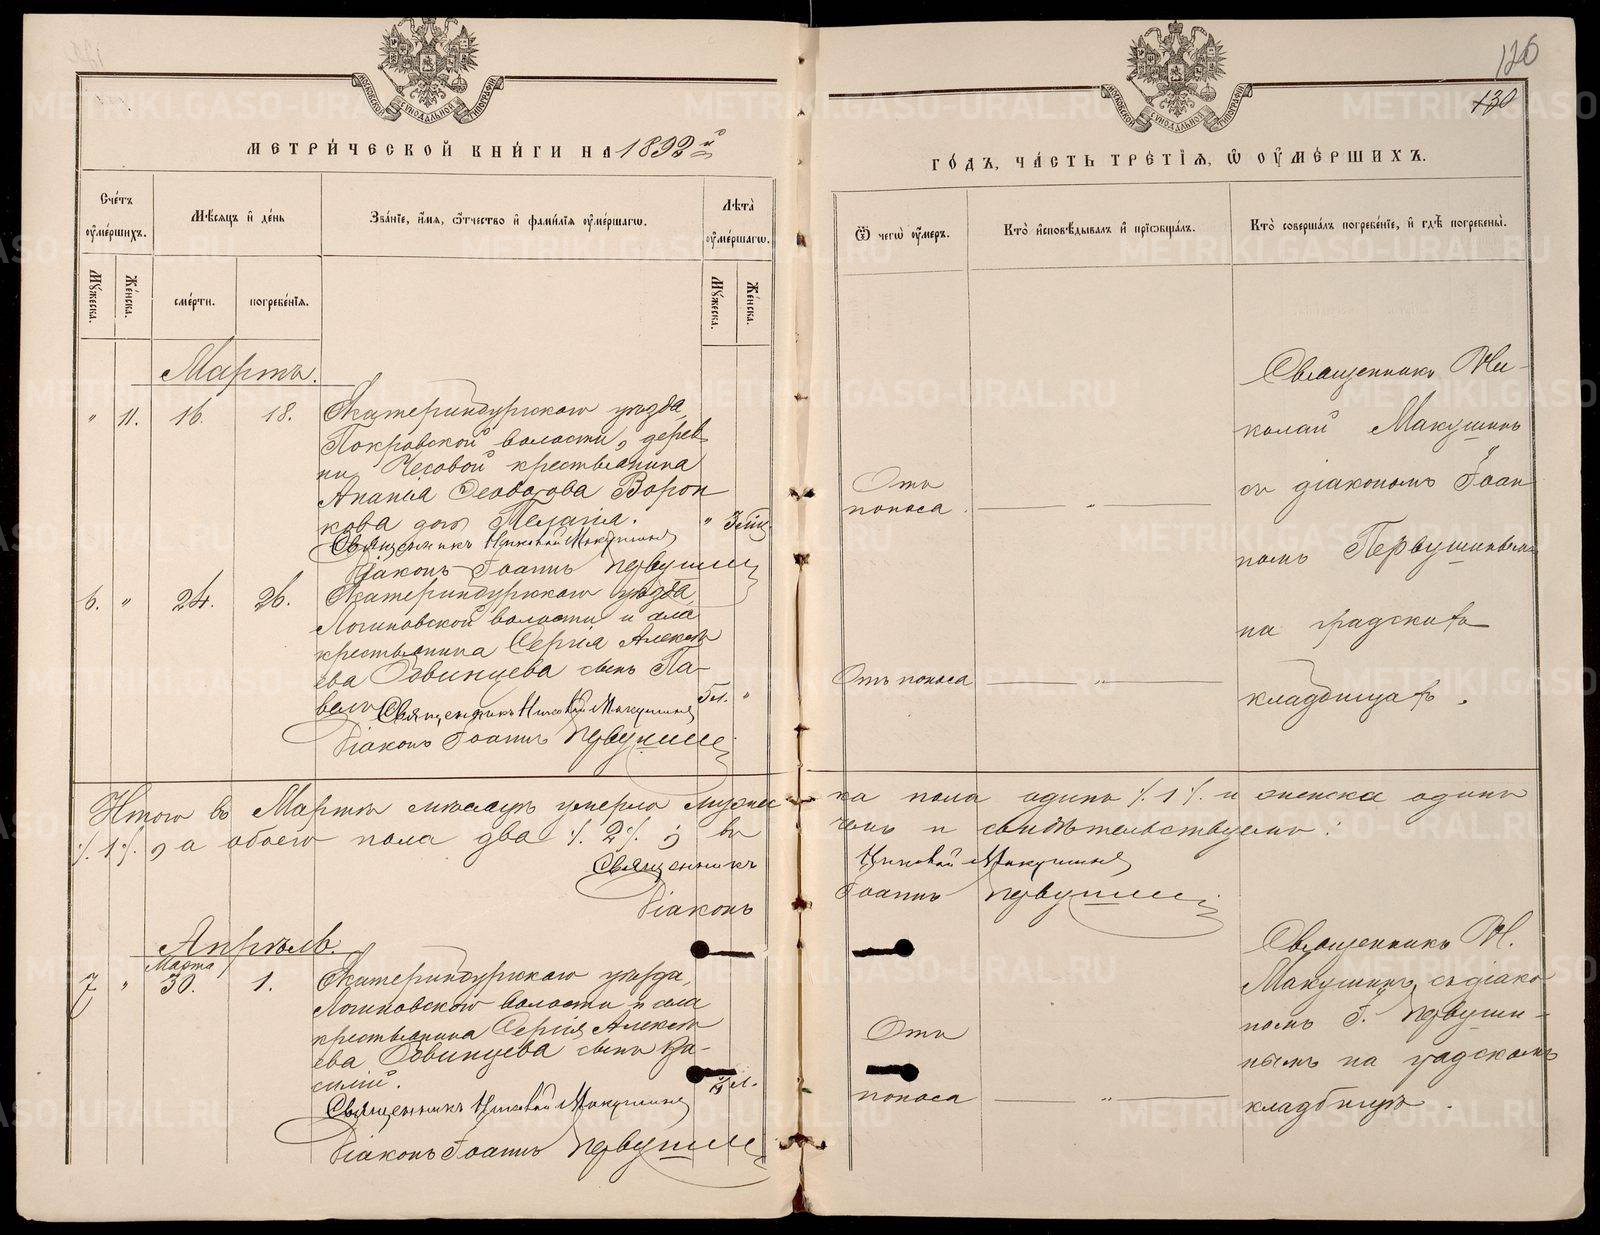 126
130
МЕТРИЧЕСКОЙ КНИГИ НА 1892й
ГОДЪ, ЧАСТЬ ТРЕТІЯ, Ѿ ОУМЕРШИХЪ.
Счетъ оумершихъ.
Мѣсяцъ и день
Званіе, имя, отчество и фамилія оумершагѡ.
Лѣта оумершагѡ.
Ѿ чегѡ оумеръ.
Кто исповѣдывалъ и пріѡбщалъ.
Кто совершалъ погребеніе, и гдѣ погребены.
Мужеска.
Женска.
смерти.
погребенія.
Мужеска.
Женска.
Мартъ.
" 11. 16. 18. Екатеринбургскаго уѣзда,
Покровской волости, дерев
ни Часовой крестьянина
Анания Ѳеодорова Ворон
кова дочь Пелагія. " 3
Священникъ Николай Макушинъ
Діаконъ Іоаннъ Первушинъ
Отъ
поноса
"
Священникъ Ни-
колай Макушинъ
съ діакономъ Іоан
номъ Первушинымъ
на градскомъ
кладбищѣ.
6. " 24. 26. Екатеринбургскаго уѣзда,
Логиновской волости и села
крестьянина Сергія Алексѣ
ева сынъ Па-
велъ 5л. "
Священникъ Николай Макушинъ
Діаконъ Іоаннъ Первушинъ
Отъ поноса "
Итого въ Мартѣ мѣсяцѣ умерло мужес
ка пола одинъ ./.1./. и женска одинъ
./.1./., а обоего пола два ./.2./.; въ
чемъ и свидѣтельствуемъ:
Священникъ Николай Макушинъ
Діаконъ Іоаннъ Первушинъ
Апрѣль.
Марта
7 " 30. 1. Екатеринбургскаго уѣзда,
Логиновской волости и села
крестьянина Сергія Алексѣ
ева сынъ Ва-
силій. л.
Священникъ Николай Макушинъ
Діаконъ Іоаннъ Первушинъ
Отъ
поноса "
Священникъ Н.
Макушинъ съ діако
номъ І. Первуши-
нымъ на градскомъ
кладбищѣ.
METRIKI.GASO-URAL.RU